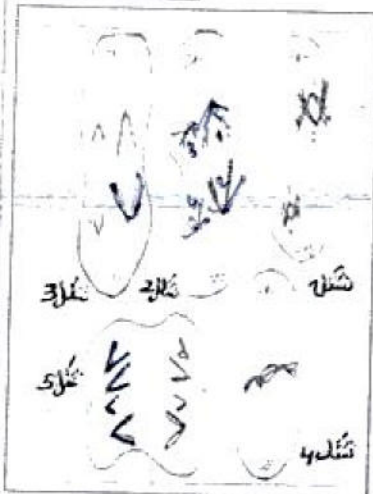 شكل1 شكل2 شكل3
شكل4 شكل5